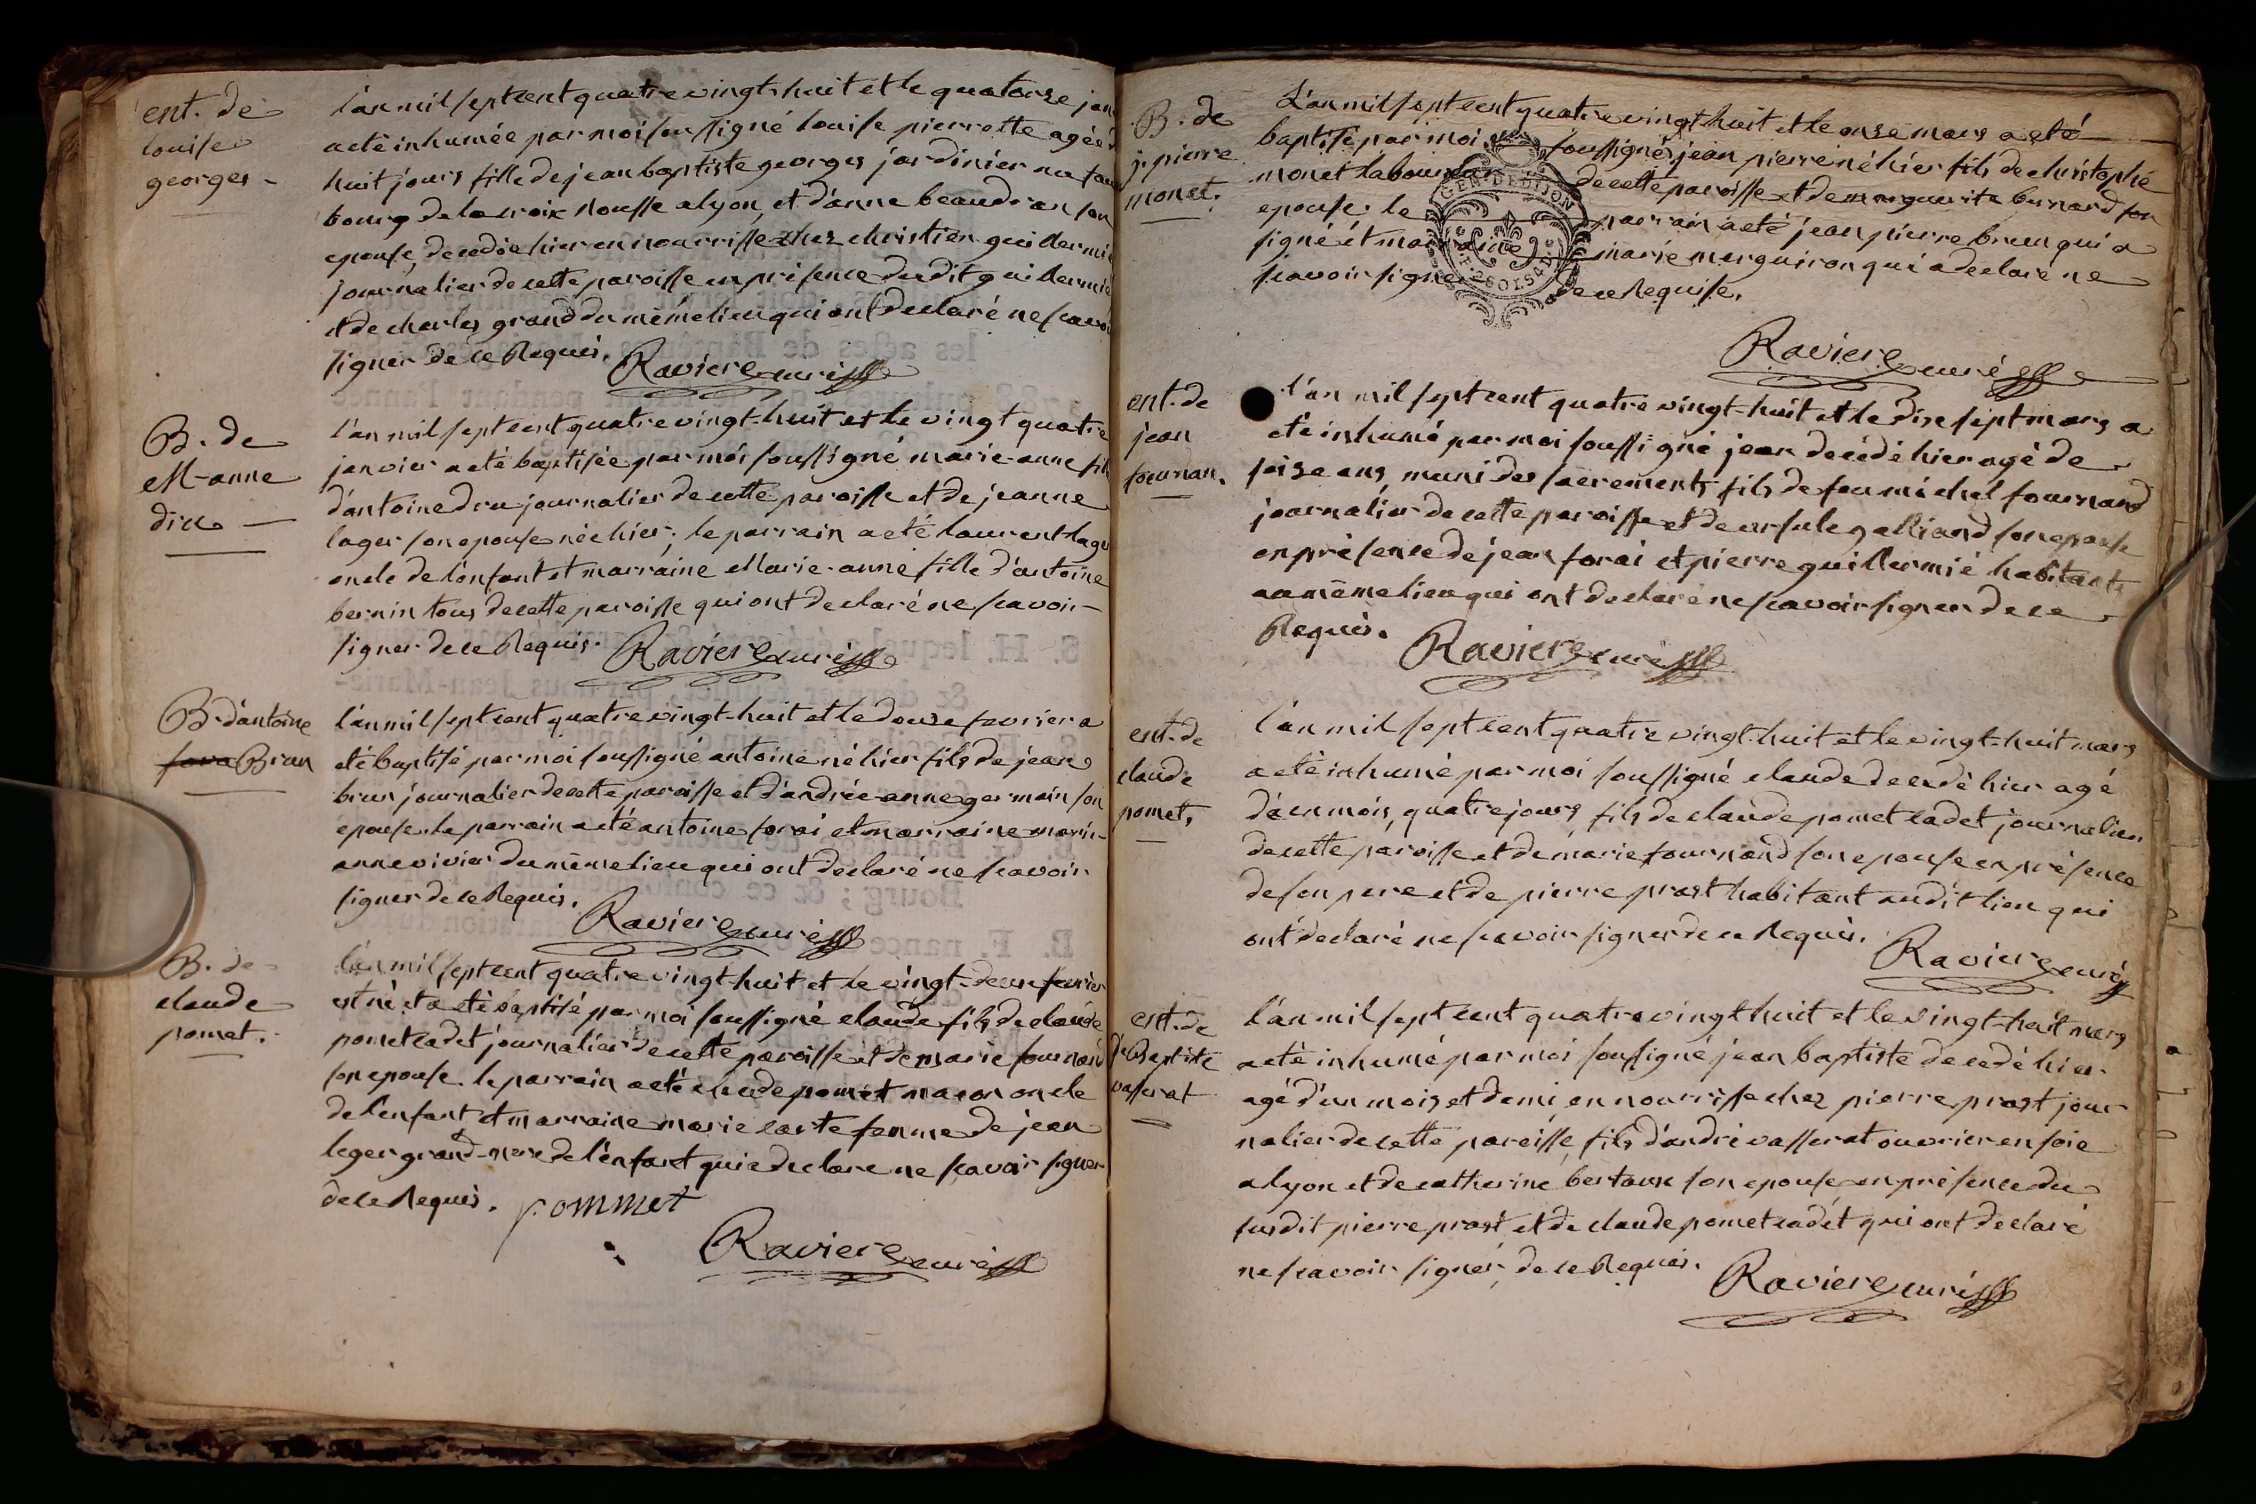 ent. de
louise
georges -
l'an mil sept cent quatre vingt-huit et le quatorze jan
a eté inhumée par moi soussigné louise pierrette agée d
huit jours fille de jean baptiste georges jardinier au faux
bourg de la croix Rousse a lyon, et d'anne beaudran son
epouse, decedée hier en nourrisse chez christien guillermi
journalier de cette paroisse en présence du dit guillermié
et de charles grand du même lieu qui ont declaré ne scavoi
signer de ce Requis. Raviere curé
B. de
M-anne
dru
l'an mil sept cent quatre vingt-huit et le vingt quatre
janvier a eté baptisée par moi soussigné marie-anne fill
d'antoine dru journalier de cette paroisse et de jeanne
lager son epouse née hier; le parrain a eté laurent lager
oncle de l'enfant et marraine Marie-anne fille d'antoine
bernin tous de cette paroisse qui ont declaré ne scavoir
signer de ce Requis. Raviere curé
B. d'antoine
fora Brun
l'an mil sept cent quatre vingt-huit et le douze fevrier a
eté baptisé par moi soussigné antoine né hier fils de jean
brun journalier de cette paroisse et d'andrée-anne germain son
épouse le parrain a eté antoine forai et marraine marie-
anne vivier du même lieu qui ont declaré ne scavoir
signer de ce Requis. Raviere curé
B. de
claude
pomet.
l'an mil sept cent quatre vingt-huit et le vingt-deux fevrier
est né et a eté baptisé par moi soussigné claude fils de claude
pomet cadet journalier de cette paroisse et de marie fournand
son epouse le parrain a eté claude pomet maçon oncle
de l'enfant, et marraine marie carte femme de jean
leger grand-mere de l'enfant qui a declaré ne scavoir signer
de ce Requis. pommet
Raviere curé
B. de
j. pierre
monet.
L'an mil sept cent quatre vingt huit et le onze mars a eté
baptisé par moi soussigné, jean pierre né hier fils de christophe
monet laboureur de cette paroisse et de marguerite bernard son
epouse. le parrain a eté jean pierre brun qui a
signé et marraine marie marguiron qui a declaré ne
scavoir signer de ce Requise.
GEN. DE DIJON
2 SOLS 4 D
Raviere curé
ent. de
jean
fournan.
l'an mil sept cent quatre vingt-huit et le dix sept mars a
eté inhumé par moi soussigné jean decédé hier agé de
seize ans, muni des sacrements fils de feu michel fournand
journalier de cette paroisse et de ursule galliand son epouse
en présence de jean forai et pierre guillermié habitants
au même lieu qui ont declaré ne scavoir signer de ce
Requis. Raviere curé
ent. de
claude
pomet,
l'an mil sept cent quatre vingt-huit et le vingt-huit mars
a eté inhumé par moi soussigné claude decedé hier agé
d'un mois, quatre jours fils de claude pomet cadet journalier
de cette paroisse et de marie fournand son epouse en présence
de son pere et de pierre prost habitant audit lieu qui
ont declaré ne scavoir signer de ce Requis.
Raviere curé
ent. de
Baptiste
vasserat
l'an mil sept cent quatre vingt-huit et le vingt-huit mars
a eté inhumé par moi soussigné jean baptiste decedé hier
agé d'un mois et demi, en nourrisse chez pierre prost jour
nalier de cette paroisse, fils d'andré vasserat ouvrier en soie
a lyon et de catherine bertaux son epouse en présence du
susdit pierre prost, et de claude pomet cadet qui ont declaré
ne scavoir signer, de ce Requis. Raviere curé